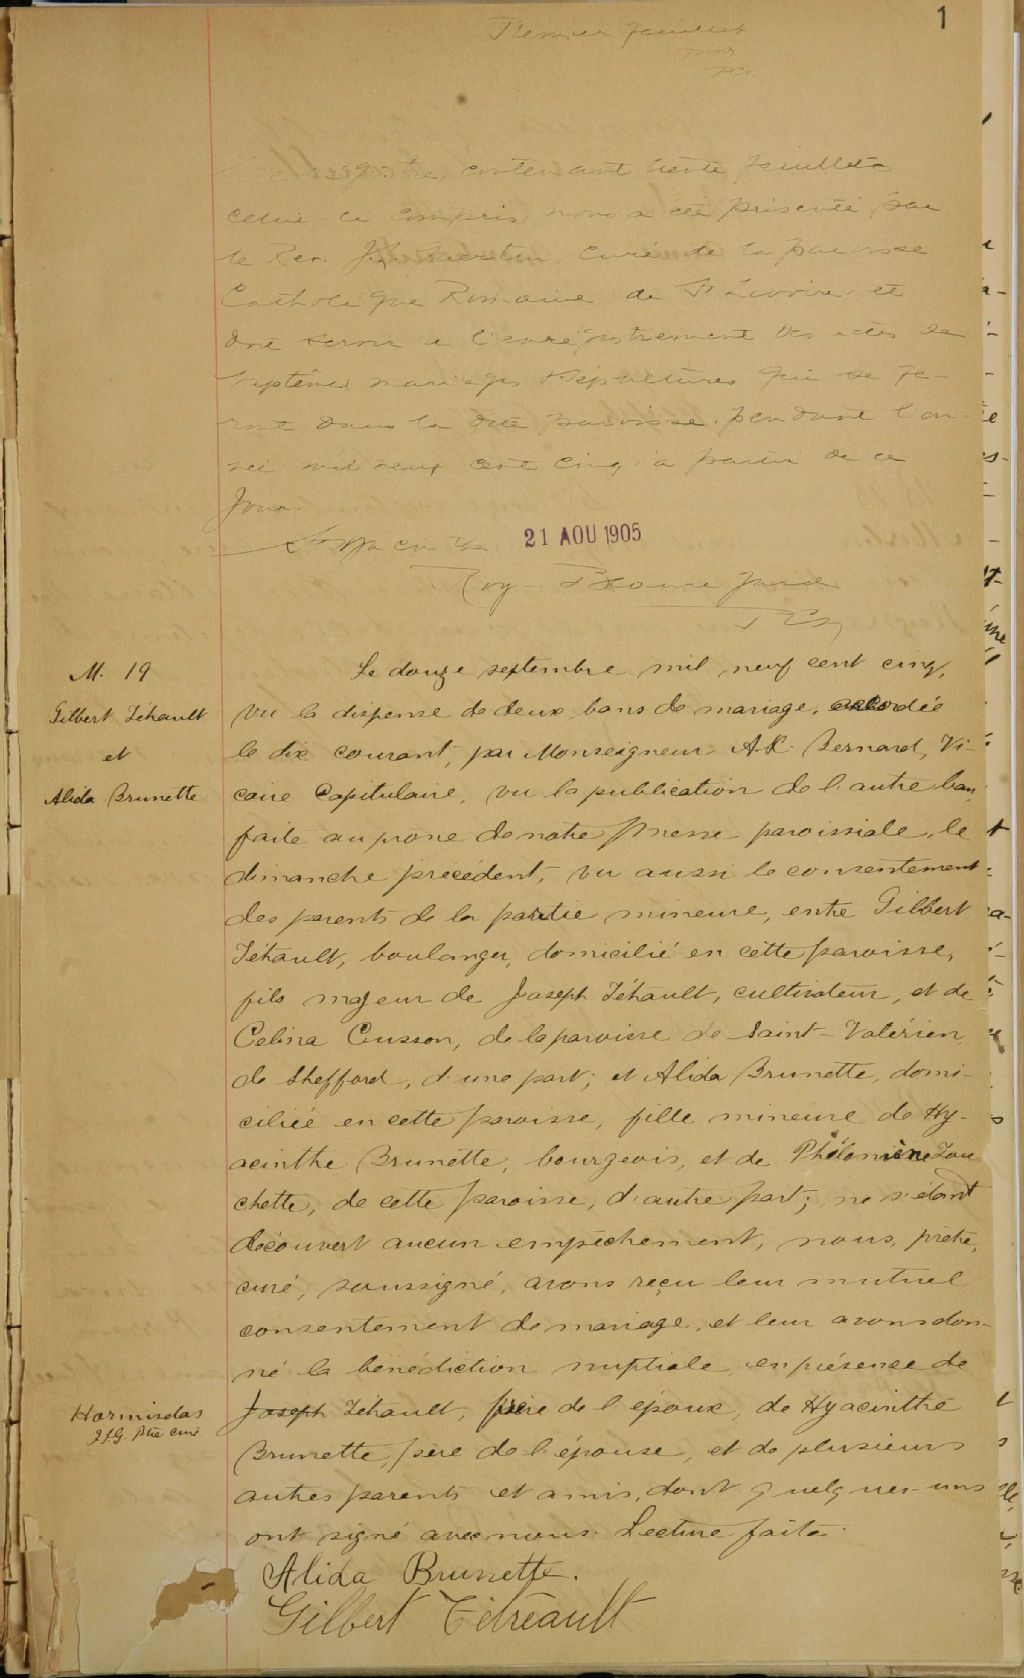 1
Premier feuillet
registre contenant trente feuillets
celui-ci compris, nous a été présenté par
le Rev. curé de la paroisse
Catholique Romaine de St Liboire et
doit servir à l'enregistrement des actes de
baptêmes mariages sépultures qui se fe-
ront dans la dite paroisse, pendant l'an-
née mil neuf cent cinq à partir de ce
jour.
St Hyacinthe 21 AOU 1905
Roy
M. 19
Gilbert Tétrault
et
Alida Brunette
Le douze septembre mil neuf cent cinq,
vu la dispense de deux bans de mariage, accordée
le dix courant, par Monseigneur A.X. Bernard, Vi-
caire Capitulaire, vu la publication de l'autre ban,
faite au prone de notre Messe paroissiale, le
dimanche précédent, vu aussi le consentement
des parents de la partie mineure, entre Gilbert
Tétrault, boulanger, domicilié en cette paroisse,
fils majeur de Joseph Tétrault, cultivateur, et de
Celina Cusson, de la paroisse de Saint-Valérien
de Shefford, d'une part; et Alida Brunette, domi-
ciliée en cette paroisse, fille mineure de Hy-
acinthe Brunette, bourgeois, et de Philomène Tou-
chette, de cette paroisse, d'autre part; ne s'étant
découvert aucun empêchement, nous, prêtre,
curé, soussigné, avons reçu leur mutuel
consentement de mariage, et leur avons don-
né la bénédiction nuptiale en présence de
Joseph Tétrault, frère de l'époux, de Hyacinthe
Hormisdas
J.J.G. Ptre curé
Brunette, père de l'épouse, et de plusieurs
autres parents et amis, dont quelques-uns
ont signé avec nous. Lecture faite.
Alida Brunette.
Gilbert Tétreault